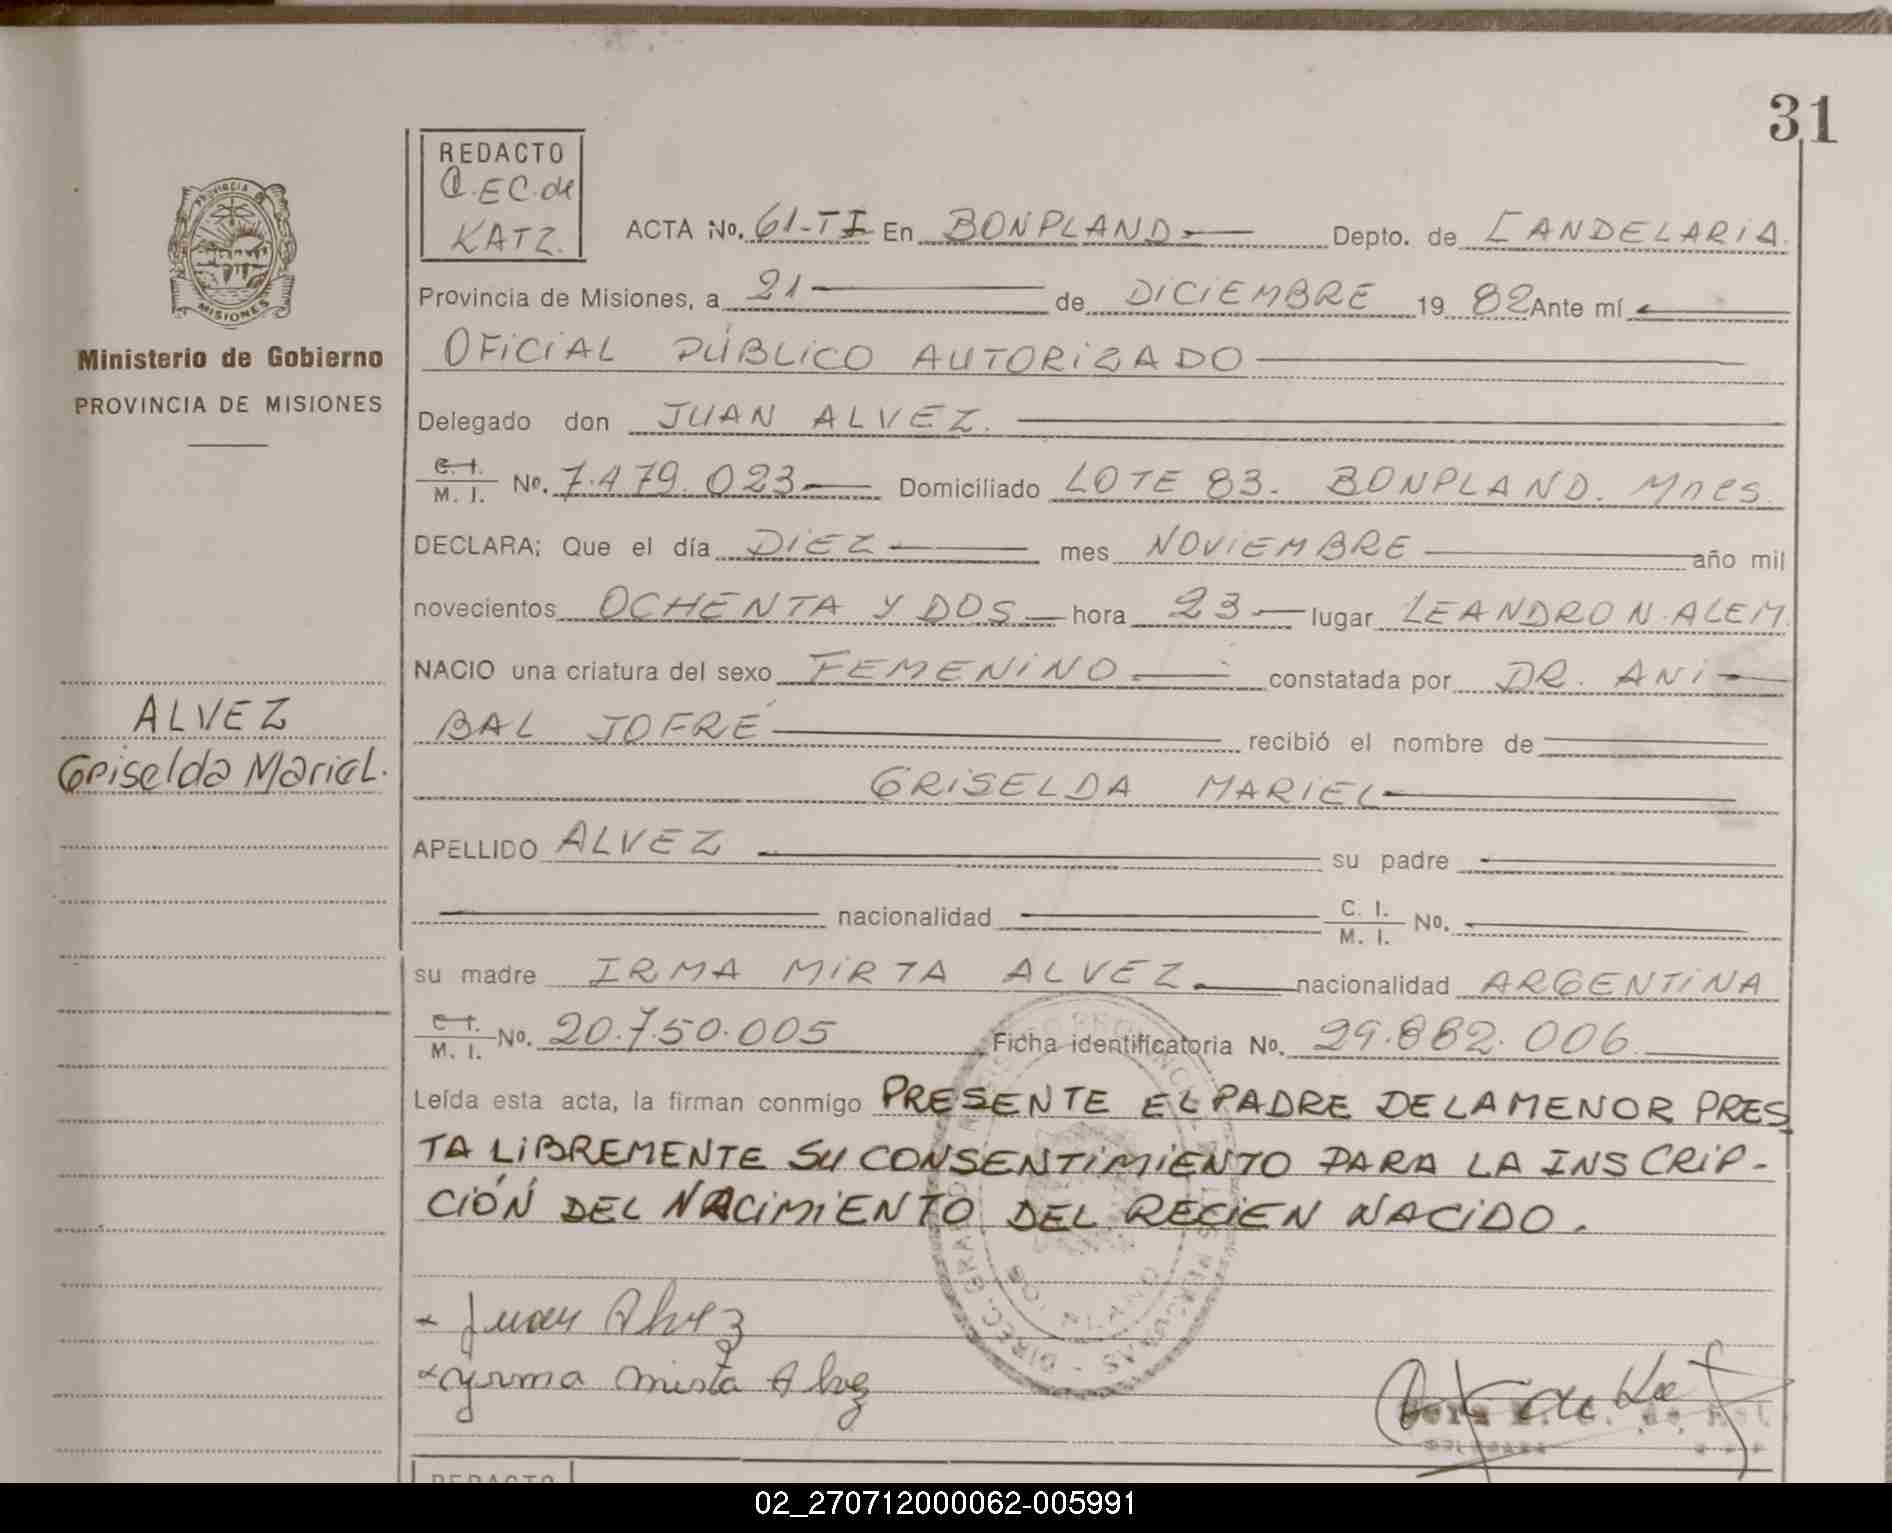 31
REDACTO
C.EC.de
KATZ.
PROVINCIA
MISIONES
Ministerio de Gobierno
PROVINCIA DE MISIONES
ALVEZ
Griselda Mariel.
ACTA No. 61-TI En BONPLAND Depto. de CANDELARIA.
Provincia de Misiones, a 21 de DICIEMBRE 19 82 Ante mí
OFICIAL PÚBLICO AUTORIZADO
Delegado don JUAN ALVEZ.
C. I.
M. I. No. 7.479.023 Domiciliado LOTE 83. BONPLAND. Mnes.
DECLARA; Que el día DIEZ mes NOVIEMBRE año mil
novecientos OCHENTA Y DOS hora 23 lugar LEANDRO N. ALEM.
NACIO una criatura del sexo FEMENINO constatada por DR. ANI-
BAL JOFRÉ recibió el nombre de
GRISELDA MARIEL
APELLIDO ALVEZ su padre
nacionalidad C. I.
M. I. No.
su madre IRMA MIRTA ALVEZ nacionalidad ARGENTINA
C. I.
M. I. No. 20.750.005 Ficha identificatoria No. 29.882.006
Leída esta acta, la firman conmigo PRESENTE EL PADRE DE LA MENOR PRES
TA LIBREMENTE SU CONSENTIMIENTO PARA LA INSCRIP-
CIÓN DEL NACIMIENTO DEL RECIEN NACIDO.
Juan Alvez
yrma mirta Alvez
REDACTO
02_270712000062-005991